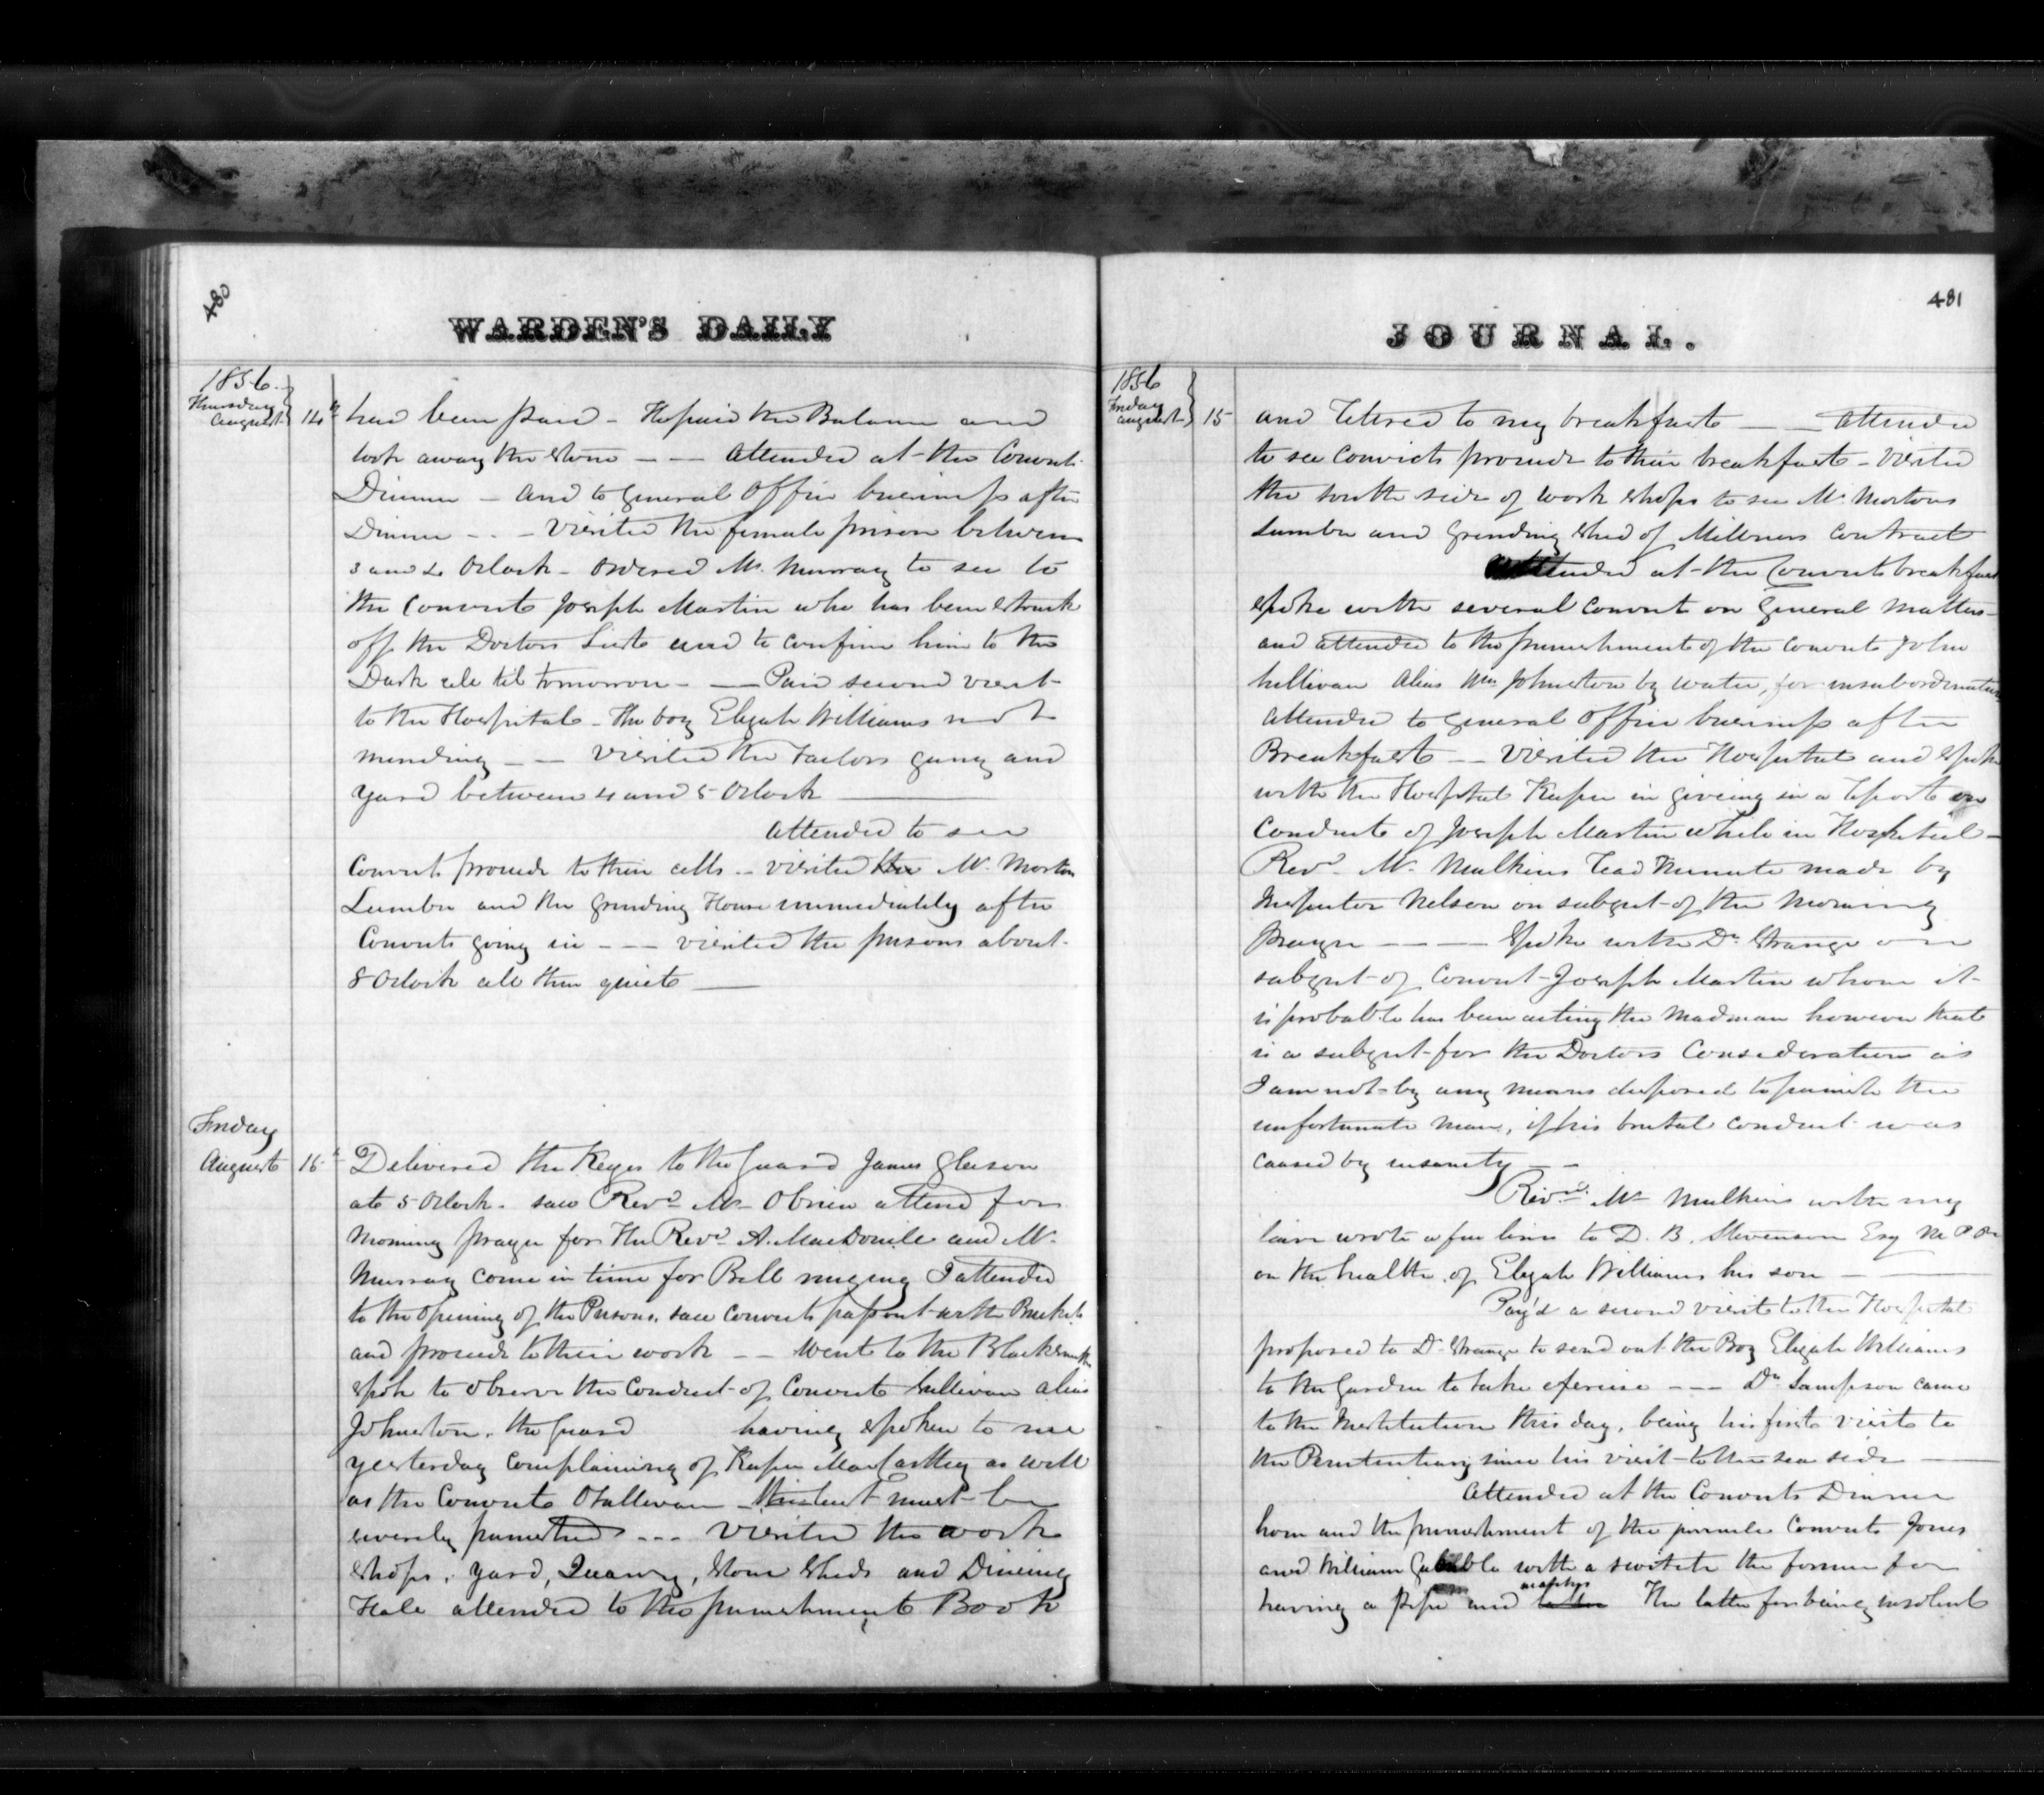 480
WARDEN'S DAILY
1856.
Thursday
August 14th
had been paid - He paid the Balance and
took away the stone - - Attended at the Convict
Dinner - and to General Office business after
Dinner - - - Visited the female prison between
3 and 4 Oclock - Ordered Mr. Murray to see to
the Convict Joseph Martin who has been struck
off the Doctors List and to confine him to the
Dark cell til tomorrow - - Paid second visit
to the Hospital - The boy Elijah Williams not
mending - - Visited the Tailors gang and
yard between 4 and 5 Oclock
Attended to see
Convicts proceed to their cells - visited the Mr. Morton
Lumber and the Grinding House immediately after
Convicts going in - - - visited the prisons about
8 Oclock all then quiet
Friday
August 15th
Delivered the Keys to the Guard James Gleeson
at 5 Oclock. saw Revd. Mr. Obrien attend for
morning prayer for the Revd. A. MacDonell and Mr.
Murray come in time for Bell ringing I attended
to the opening of the Prisons, saw convicts pass out with Buckets
and proceed to their work - - Went to the Blacksmiths
shop to observe the conduct of Convict Sullivan alias
Johnston, the Guard having spoken to me
yesterday complaining of Keeper MacCarthey as well
as the Convict OSullivan must be
severely punished - - - Visited the work
shops, yard, Quarry, stone sheds and Dining
Hall attended to the punishment Book
JOURNAL.
481
1856
Friday
August 15
and retired to my breakfast - - attended
to see Convicts proceed to their breakfast - Visited
the south side of work shops to see Mr. Mortons
Lumber and Grinding shed of Millners Contract
Attended at the Convicts breakfast
spoke with several convicts on General matters -
and attended to the punishment of the convict John
Sullivan Alias Wm Johnston by water, for insubordination
Attended to General Office business after
Breakfast - - Visited the Hospital and spoke
with the Hospital Keeper in giveing in a report on
Conduct of Joseph Martin while in Hospital -
Revd. Mr. Mulkins read Minute made by
Inspector Nelson on subject of the Morning
Prayer - - - Spoke with Dr. Strange on
subject of Convict Joseph Martin whom it
is probable has been acting the Madman however that
is a subject for the Doctors Consideration as
I am not by any means disposed to punish the
unfortunate man, if his brutal conduct was
caused by insanity - -
Revd. Mr. Mulkins with my
leave wrote a few lines to D. B. Stevenson Esq M.P.P.
on the health of Elijah Williams his son -
Pay'd a second visit to the Hospital
proposed to Dr. Strange to send out the Boy Elijah Williams
to the Garden to take exercise - - - Dr. Sampson came
to the Institution this day, being his first visit to
the Penitentiary since his visit to the sea side
Attended at the Convicts Dinner
hour and the punishment of the juvenile Convicts Jones
and William Gabble with a switch the former for
having a pipe and matches The latter for being insolent